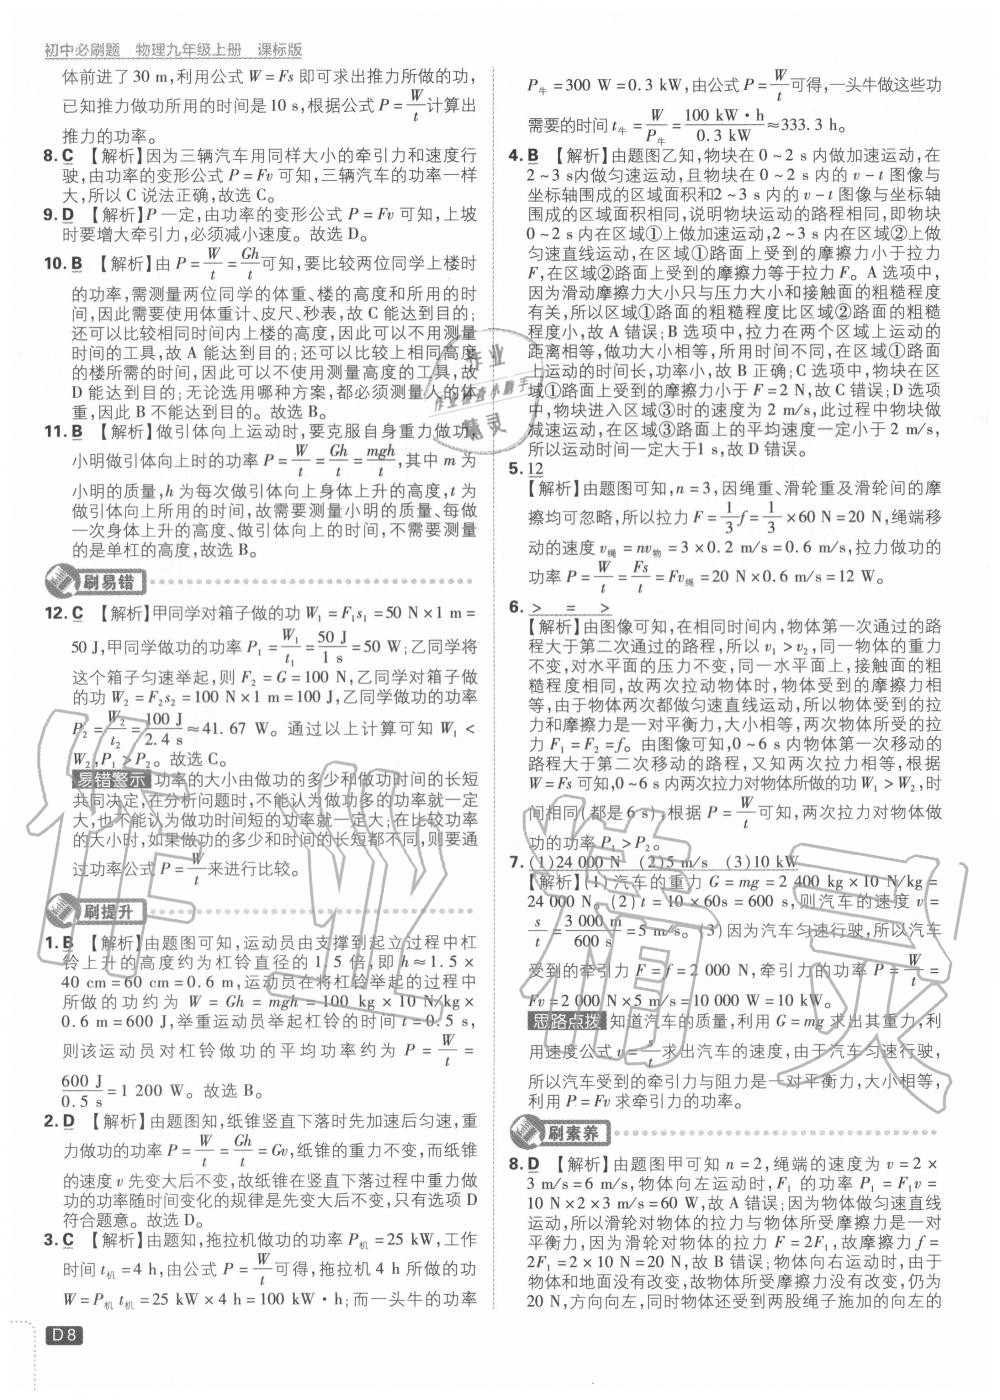 初中必刷题 物理九年级上册 课标版
体前进了 30 m,利用公式 W=Fs 即可求出推力所做的功,
已知推力做功所用的时间是 10 s,根据公式 P=W/t计算出
推力的功率。
8. C 【解析】因为三辆汽车用同样大小的牵引力和速度行
驶,由功率的变形公式 P=Fv 可知,三辆汽车的功率一样
大,所以 C 说法正确,故选 C。
9. D 【解析】P 一定,由功率的变形公式 P=Fv 可知,上坡
时要增大牵引力,必须减小速度。故选 D。
10. B 【解析】由 P=W/t=Gh/t可知,要比较两位同学上楼时
的功率,需测量两位同学的体重、楼的高度和所用的时
间,因此需要使用体重计、皮尺、秒表,故 C 能达到目的;
还可以比较相同时间内上楼的高度,因此可以不用测量
时间的工具,故 A 能达到目的;还可以比较上相同高度
的楼所需的时间,因此可以不使用测量高度的工具,故
D 能达到目的;无论选用哪种方案,都必须测量人的体
重,因此 B 不能达到目的。故选 B。
11. B 【解析】做引体向上运动时,要克服自身重力做功,
小明做引体向上时的功率 P=W/t=Gh/t=mgh/t,其中 m 为
小明的质量,h 为每次做引体向上身体上升的高度,t 为
做引体向上所用的时间,故需要测量小明的质量、每做
一次身体上升的高度、做引体向上的时间,不需要测量
的是单杠的高度,故选 B。
刷易错
12. C 【解析】甲同学对箱子做的功 W₁=F₁s₁=50 N×1 m=
50 J,甲同学做功的功率 P₁=W₁/t₁=50 J/1 s=50 W;乙同学将
这个箱子匀速举起,则 F₂=G=100 N,乙同学对箱子做
的功 W₂=F₂s₂=100 N×1 m=100 J,乙同学做功的功率
P₂=W₂/t₂=100 J/2.4 s≈41.67 W。通过以上计算可知 W₁<
W₂,P₁>P₂。故选 C。
易错警示 功率的大小由做功的多少和做功时间的长短
共同决定,在分析问题时,不能认为做功多的功率就一定
大,也不能认为做功时间短的功率就一定大;在比较功率
的大小时,如果做功的多少和时间的长短都不同,则要通
过功率公式 P=W/t来进行比较。
刷提升
1. B 【解析】由题图可知,运动员由支撑到起立过程中杠
铃上升的高度约为杠铃直径的 1.5 倍,即 h≈1.5×
40 cm=60 cm=0.6 m,运动员在将杠铃举起的过程中
所做的功约为 W=Gh=mgh=100 kg×10 N/kg×
0.6 m=600 J,举重运动员举起杠铃的时间 t=0.5 s,
则该运动员对杠铃做功的平均功率约为 P=W/t=
600 J/0.5 s=1 200 W。故选 B。
2. D 【解析】由题图知,纸锥竖直下落时先加速后匀速,重
力做功的功率 P=W/t=Gh/t=Gv,纸锥的重力不变,而纸锥
的速度 v 先变大后不变,故纸锥在竖直下落过程中重力做
功的功率随时间变化的规律是先变大后不变,只有选项 D
符合题意。故选 D。
3. C 【解析】由题知,拖拉机做功的功率 P机=25 kW,工作
时间 t机=4 h,由公式 P=W/t可得,拖拉机 4 h 所做的功
W=P机t机=25 kW×4 h=100 kW·h;而一头牛的功率
P牛=300 W=0.3 kW,由公式 P=W/t可得,一头牛做这些功
需要的时间 t牛=W/P牛=100 kW·h/0.3 kW≈333.3 h。
4. B 【解析】由题图乙知,物块在 0~2 s 内做加速运动,在
2~3 s内做匀速运动,且物块在 0~2 s 内的 v-t 图像与
坐标轴围成的区域面积和2~3 s 内的 v-t 图像与坐标轴
围成的区域面积相同,说明物块运动的路程相同,即物块
0~2 s 内在区域①上做加速运动,2~3 s 内在区域②上做
匀速直线运动,在区域①路面上受到的摩擦力小于拉力
F,在区域②路面上受到的摩擦力等于拉力 F。A 选项中,
因为滑动摩擦力大小只与压力大小和接触面的粗糙程度
有关,所以区域①路面的粗糙程度比区域②路面的粗糙
程度小,故 A 错误;B 选项中,拉力在两个区域上运动的
距离相等,做功大小相等,所用时间不同,在区域①路面
上运动的时间长,功率小,故 B 正确;C 选项中,物块在区
域①路面上受到的摩擦力小于 F=2 N,故 C 错误;D 选项
中,物块进入区域③时的速度为 2 m/s,此过程中物块做
减速运动,在区域③路面上的平均速度一定小于 2 m/s,
所以运动时间一定大于1 s,故 D 错误。
5. 12
【解析】由题图可知,n=3,因绳重、滑轮重及滑轮间的摩
擦均可忽略,所以拉力 F=1/3f=1/3×60 N=20 N,绳端移
动的速度 v绳=nv物=3×0.2 m/s=0.6 m/s,拉力做功的
功率 P=W/t=Fs/t=Fv绳=20 N×0.6 m/s=12 W。
6. > = >
【解析】由图像可知,在相同时间内,物体第一次通过的路
程大于第二次通过的路程,所以 v₁>v₂,同一物体的重力
不变,对水平面的压力不变,同一水平面上,接触面的粗
糙程度相同,故两次拉动物体时,物体受到的摩擦力相
等,由于物体两次都做匀速直线运动,所以物体受到的拉
力和摩擦力是一对平衡力,大小相等,两次物体所受的拉
力 F₁=F₂=f。由图像可知,0~6 s内物体第一次移动的
路程大于第二次移动的路程,又知两次拉力相等,根据
W=Fs 可知,0~6 s内两次拉力对物体所做的功 W₁>W₂,时
间相同(都是 6 s),根据 P=W/t可知,两次拉力对物体做
功的功率 P₁>P₂。
7. (1)24 000 N (2)5 m/s (3)10 kW
【解析】(1)汽车的重力 G=mg=2 400 kg×10 N/kg=
24 000 N。(2)t=10×60s=600 s,则汽车的速度 v=
s/t=3 000 m/600 s=5 m/s。(3)因为汽车匀速行驶,所以汽车
受到的牵引力 F=f=2 000 N,牵引力的功率 P=W/t=
Fv=2 000 N×5 m/s=10 000 W=10 kW。
思路点拨 知道汽车的质量,利用 G=mg 求出其重力,利
用速度公式 v=s/t求出汽车的速度,由于汽车匀速行驶,
所以汽车受到的牵引力与阻力是一对平衡力,大小相等,
利用 P=Fv 求牵引力的功率。
刷素养
8. D 【解析】由题图甲可知 n=2,绳端的速度为 v=2×
3 m/s=6 m/s,物体向左运动时,F₁ 的功率 P₁=F₁v=
10 N×2×3 m/s=60 W,故 A 错误;因为物体做匀速直线
运动,所以滑轮对物体的拉力与物体所受摩擦力是一对
平衡力,因为滑轮对物体的拉力 F=2F₁,故摩擦力 f=
2F₁=2×10 N=20 N,故 B 错误;物体向右运动时,由于
物体和地面没有改变,故物体所受摩擦力没有改变,仍为
20 N,方向向左,同时物体还受到两股绳子施加的向左的
D8
作业
作业检查小助手
精灵
作业精灵